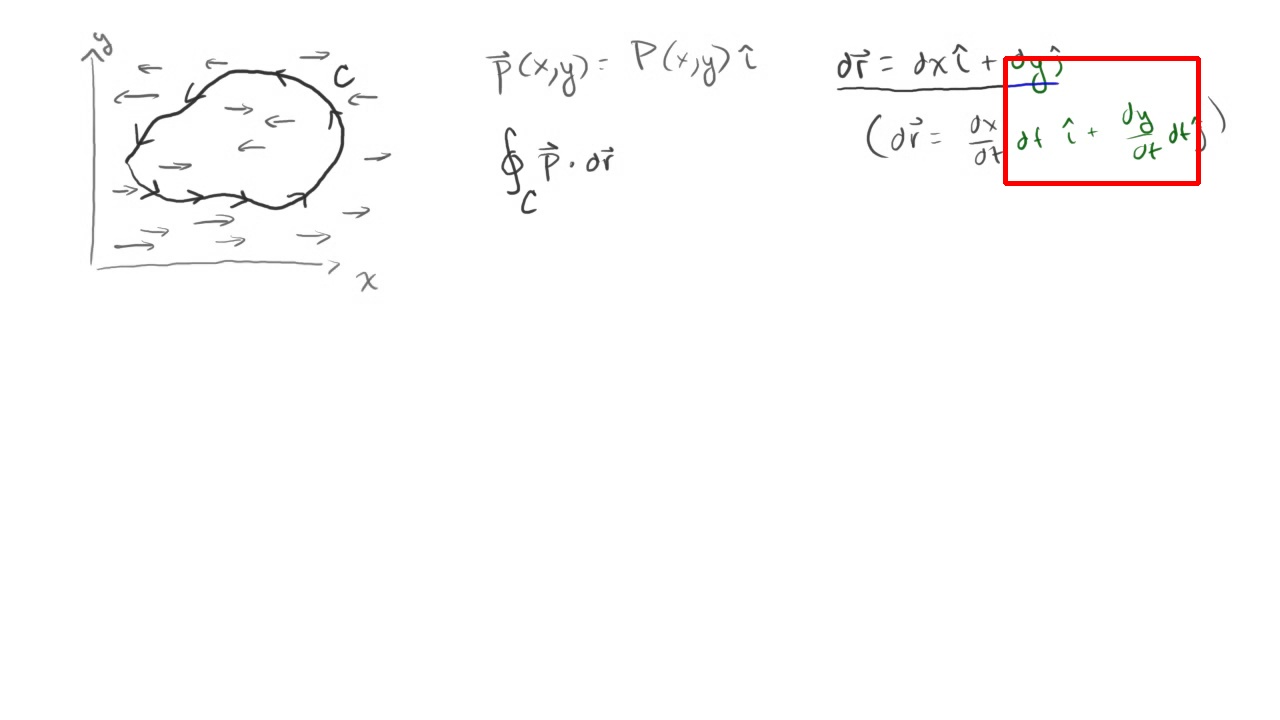 y
C
x
\vec{p}(x,y) = P(x,y) î
∮_C \vec{p} · d\vec{r}
d\vec{r} = dx î + dy ĵ
(d\vec{r} = \frac{dx}{dt} dt î + \frac{dy}{dt} dt ĵ)